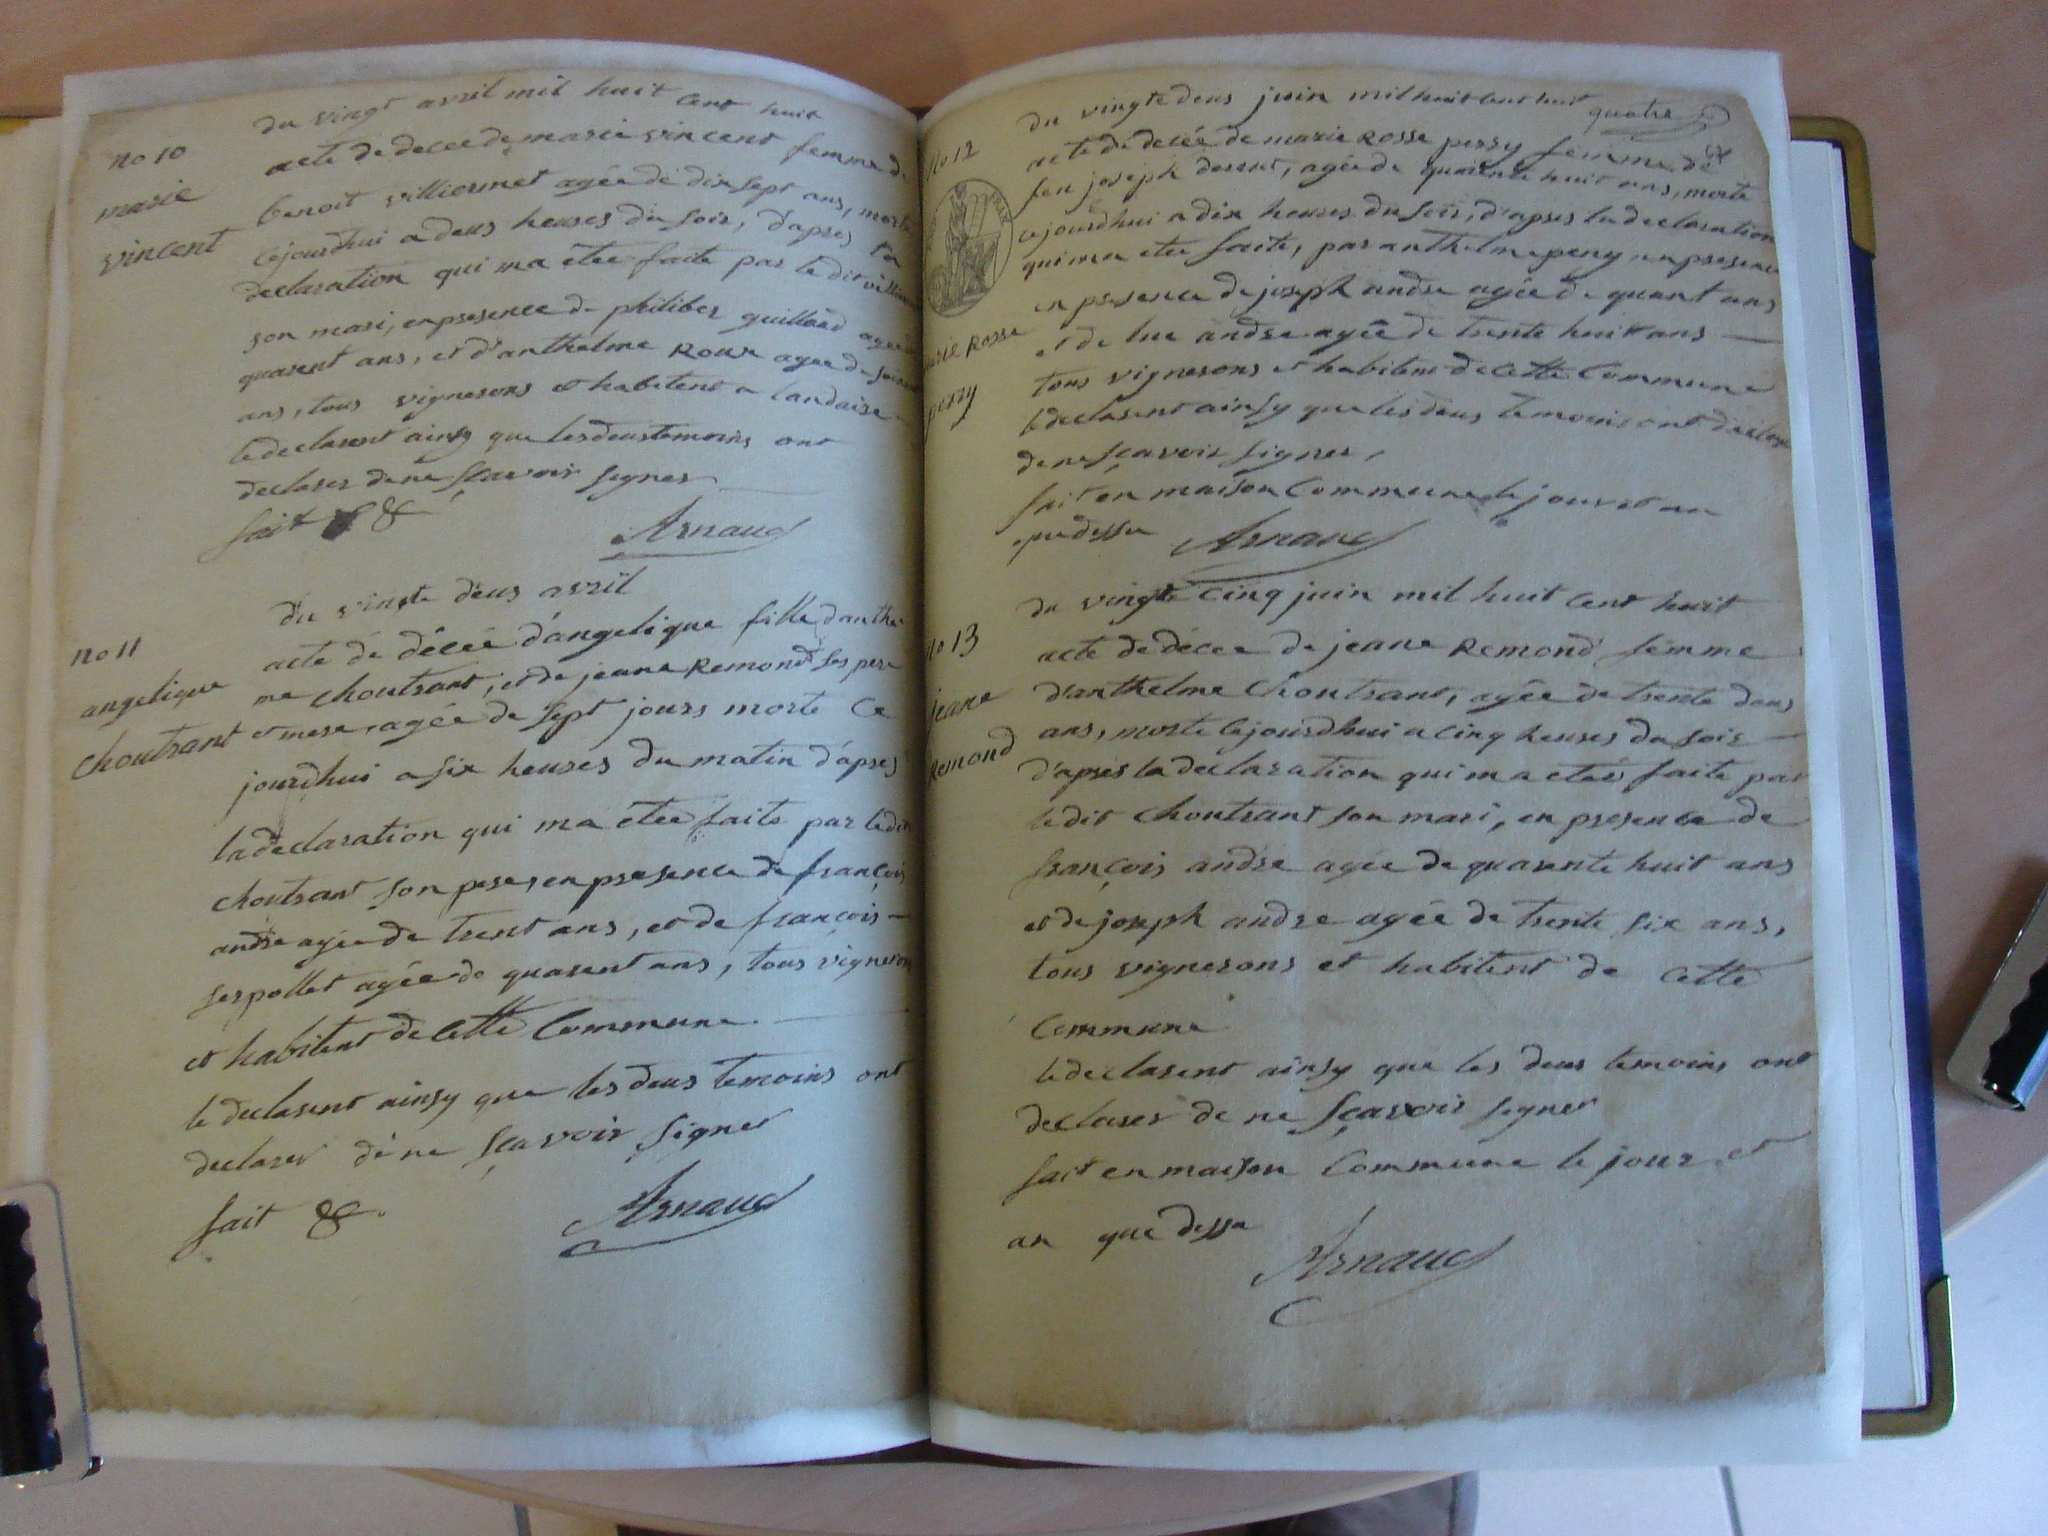 du vingt avril mil huit cent huit
no 10
marie
vincent
acte de decée de marie vincent femme de
benoit villiermet agée de dix sept ans, morte
cejourdhui a deus heures du soir, d'apres la
declaration qui ma etée faite par ledit
son mari, en presence de philiber guilland agée
quarent ans, et d'anthelme Roux agée de
ans, tous vignerons et habitent a landaise
le declarent ainsy que les deus temoins ont
declarer de ne sçavoir signer
fait &
Arnaud
du vingte deus avril
no 11
angelique
choutrant
acte de décée d'angelique fille d'anthel
me choutrant, et de jeane Remond ses pere
et mere, agée de sept jours morte ce
jourdhui a six heures du matin d'apres
la declaration qui ma etée faite par ledit
choutrant son pere, en presence de françois
andre agée de trent ans, et de françois
serpollet agée de quarent ans, tous vignerons
et habitent de cette Commune
le declarent ainsy que les deus temoins ont
declarer de ne sçavoir signer
fait &.
Arnaud
quatre
du vingte deus juin mil huit cent huit
no 12
marie Rosse
perry
acte de decée de marie Rosse perry femme de
feu joseph , agée de quarente huit ans, morte
cejourdhui a dix heures du soir, d'apres la declaration
qui ma etée faite, par anthelme en presence
en presence de joseph andre agée de quarent ans
et de luc andre agée de trente huit ans
tous vignerons et habitens de cette Commune
le declarent ainsy que les deus temoins ont declare
de ne sçavoir signer,
fait en maison Commune le jour et an
que dessu
Arnaud
du vingte cinq juin mil huit cent huit
no 13
jeane
Remond
acte de décée de jeane Remond femme
d'anthelme Choutrant, agée de trente deus
ans, morte cejourdhui a cinq heures du soir
d'apres la declaration qui ma etée faite par
ledit Choutrant son mari, en presence de
françois andre agée de quarente huit ans
et de joseph andre agée de trente six ans,
tous vignerons et habitent de cette
Commune
le declarent ainsy que les deus temoins ont
declarer de ne sçavoir signer
fait en maison Commune le jour et
an que dessu
Arnaud